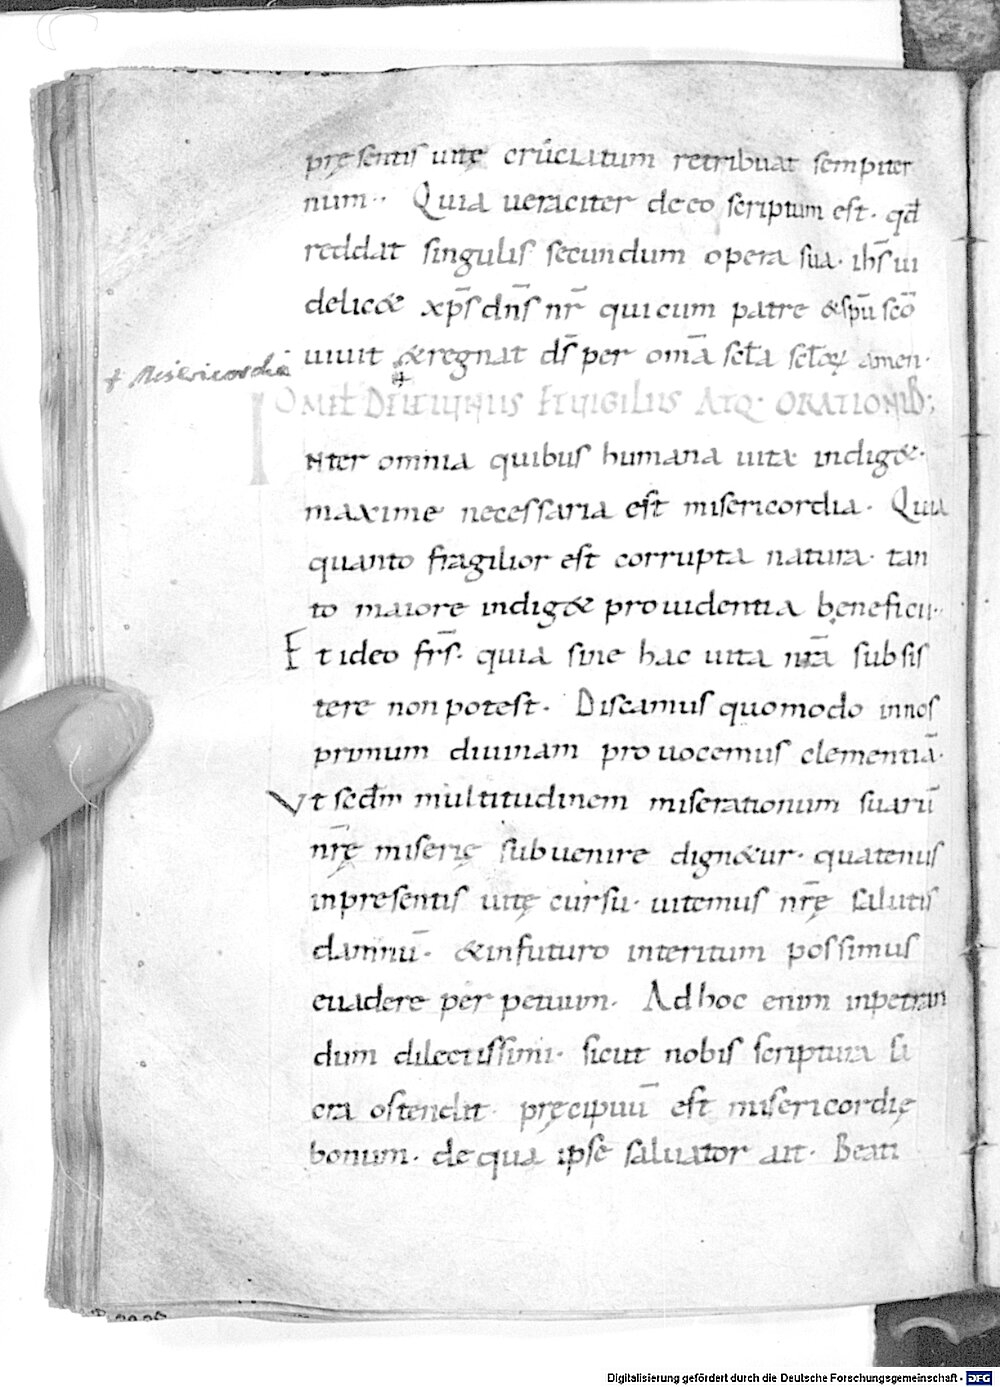 pręsentis uitę cruciatum retribuat sempiter
num·· Quia ueraciter de eo scriptum est· qđ
reddat singulis secundum opera sua· ihs̄ ui
delic& xp̄s dn̄s nr̄ qui cum patre & sp̄u sc̄o
uiuit & regnat ds̄ per om̄a scl̄a scl̄oꝝ amen·
+ Misericordia
OMEL DE IEIUNIIS ET UIGILIIS ATQ· ORATIONIB;
INter omnia quibus humana uita indig&·
maxime necessaria est misericordia· Quia
quanto fragilior est corrupta natura· tan
to maiore indig& prouidentia beneficii··
Et ideo frs̄· quia sine hac uita nr̄a subsis
tere non potest· Discamus quomodo in nos
primum diuinam prouocemus clementiā·
Vt scdm̄ multitudinem miserationum suarū
nr̄ę miserię subuenire dign&ur· quatenus
in presentis uitę cursu· uitemus nr̄ę salutis
damnū· & in futuro interitum possimus
euadere perpetuum· Ad hoc enim inpetran
dum dilectissimi· sicut nobis scriptura sa
cra ostendit· pręcipuū est misericordię
bonum· de qua ipse saluator ait· Beati
Digitalisierung gefördert durch die Deutsche Forschungsgemeinschaft - DFG